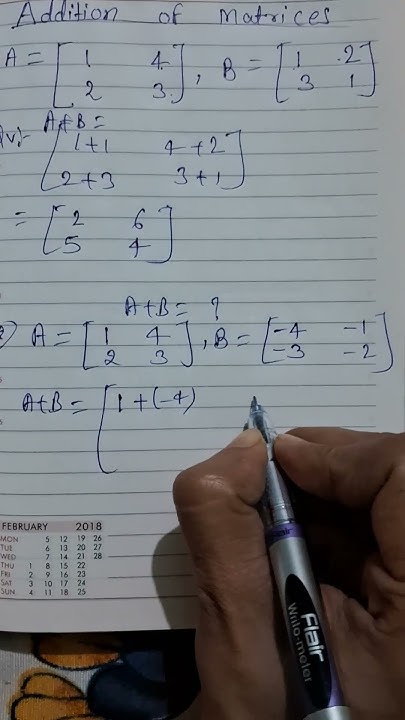 Addition of Matrices
A = [1 4, B = [1 2
2 3] 3 1]
A+B =
[1+1 4+2
2+3 3+1]
= [2 6
5 4]
A+B = ?
A = [1 4, B = [-4 -1
2 3] -3 -2]
A+B = [1+(-4)
FEBRUARY 2018
MON 5 12 19 26
TUE 6 13 20 27
WED 7 14 21 28
THU 1 8 15 22
FRI 2 9 16 23
SAT 3 10 17 24
SUN 4 11 18 25
Flair
Writo-meter